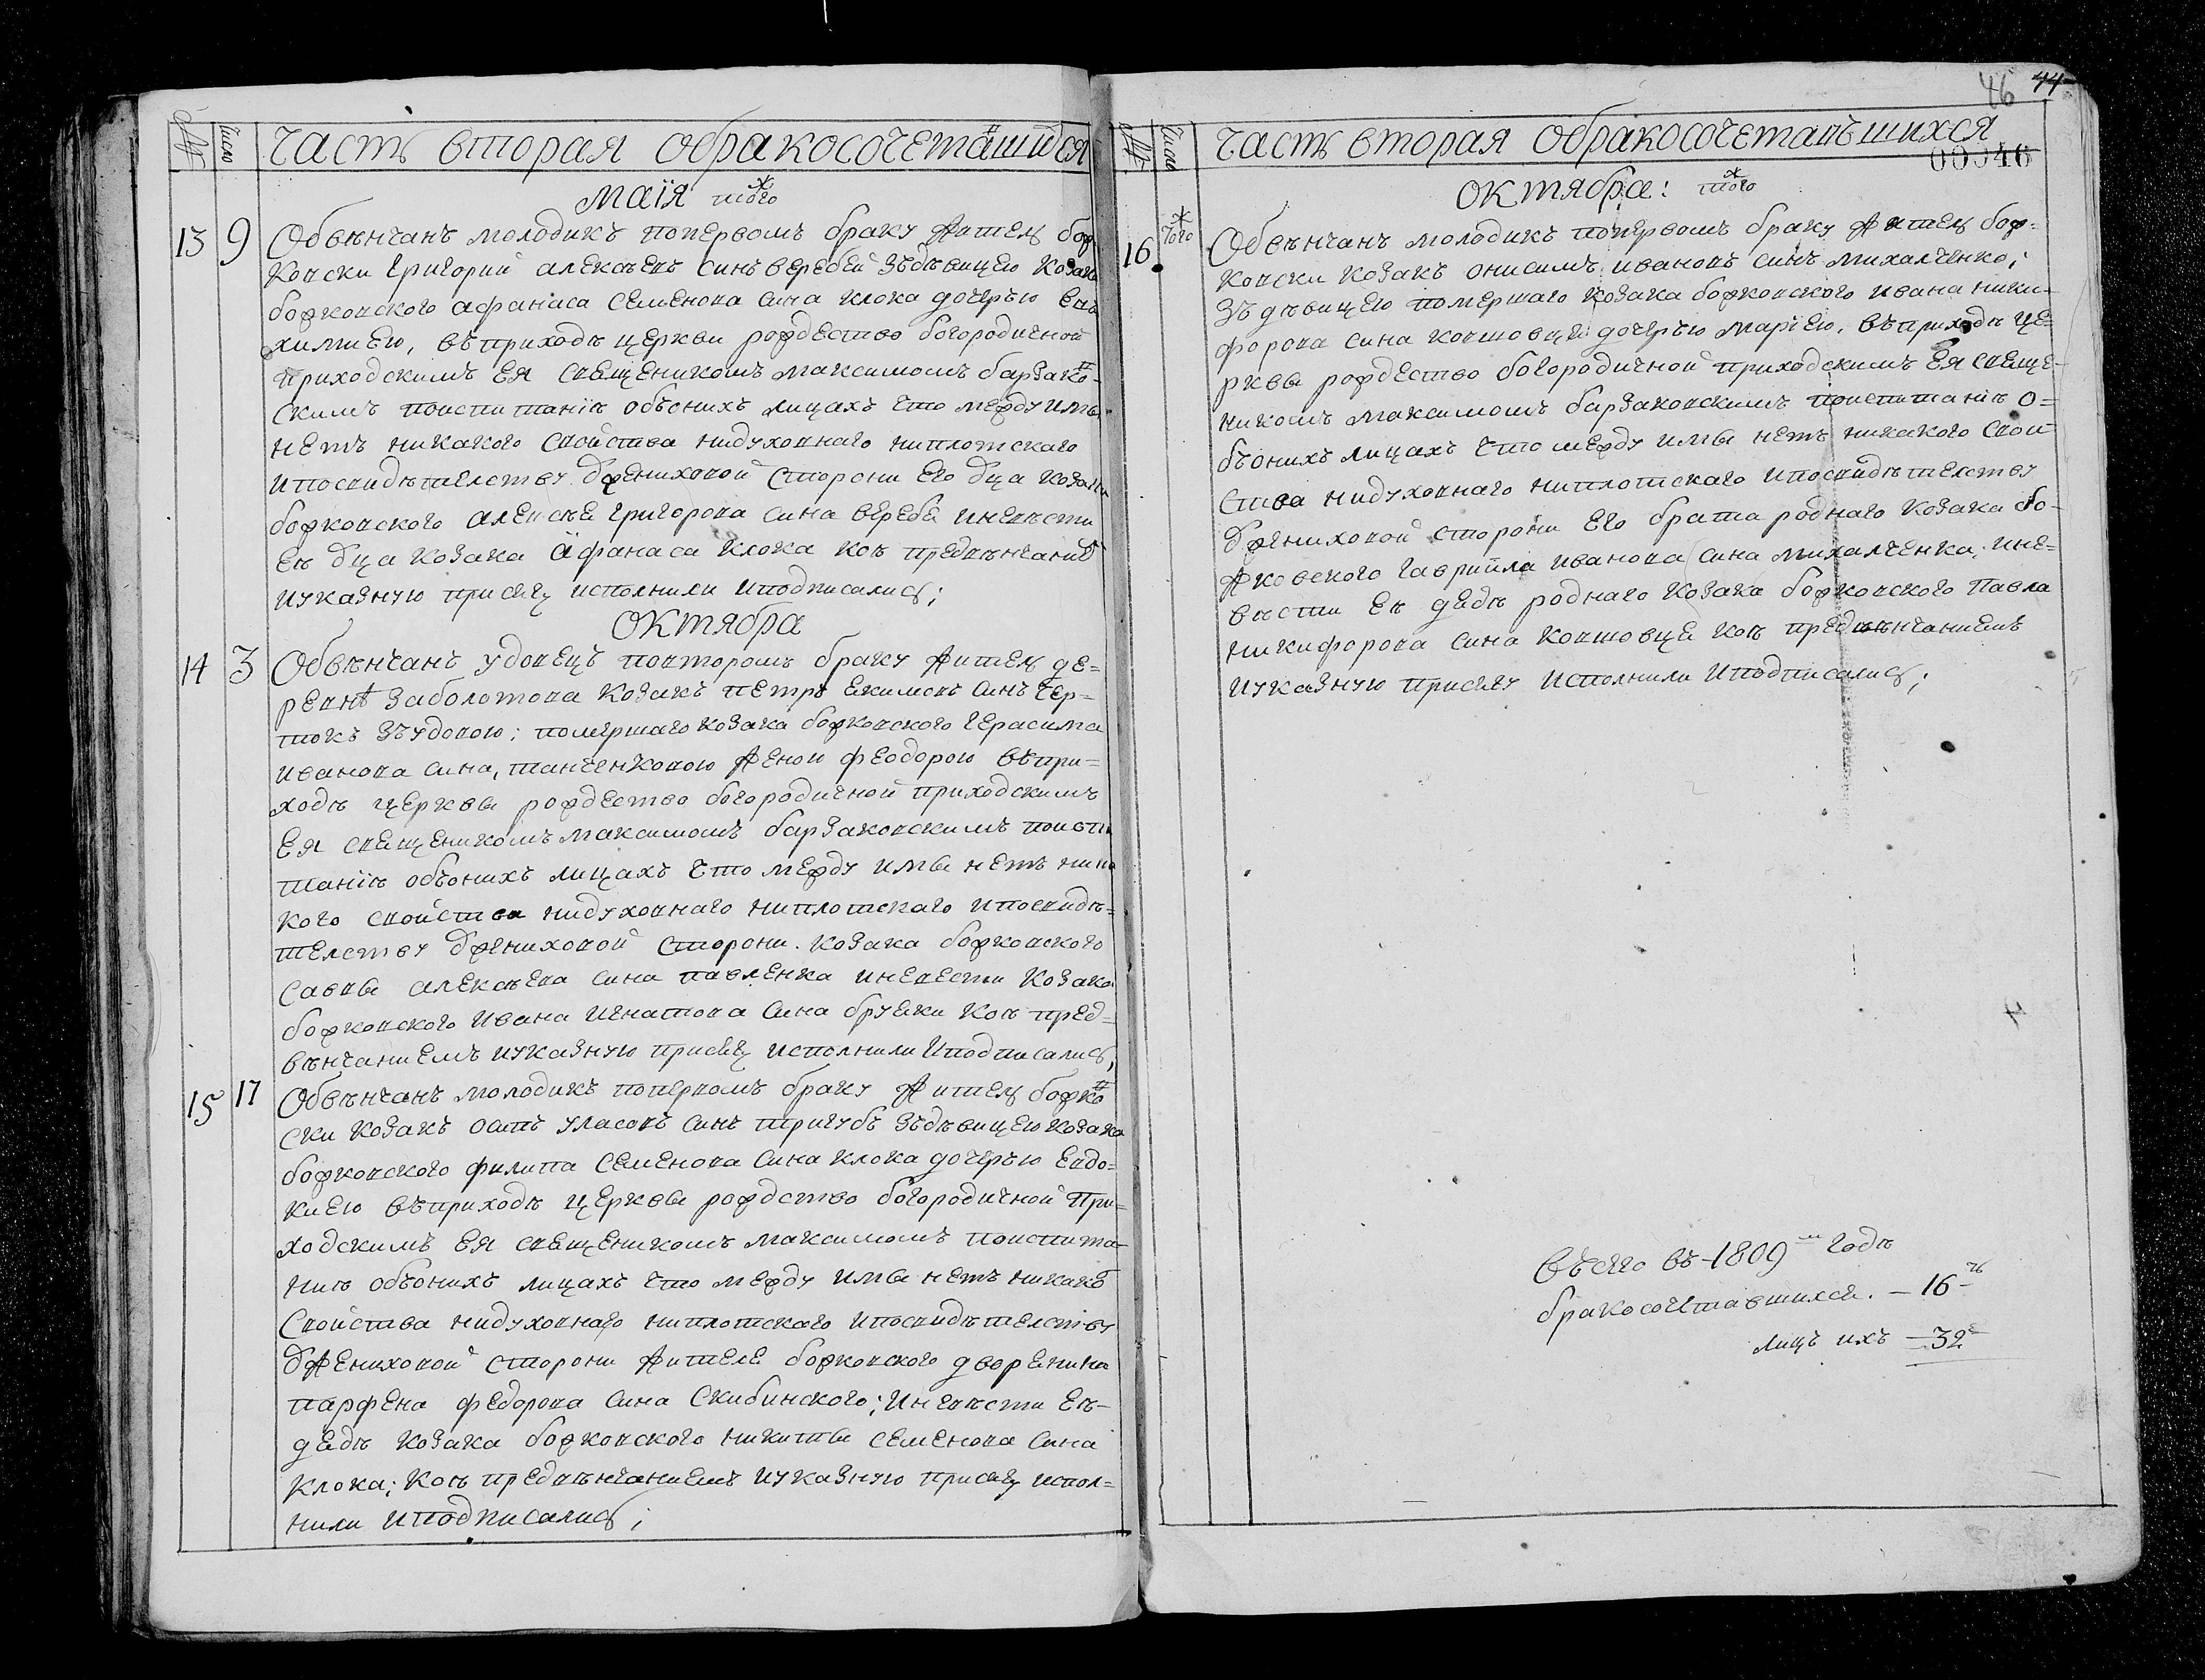 № Число Часть вторая обракосочетавшихся
Маія тогож
13 9 Обвѣнчанъ молодикъ попервомъ браку житель бор-
ковски григорий алексѣевъ синъ веребей зъдѣвицею козака
боржковского афанаса семенова сина клока дочерью евъ
химиею, въприходѣ церкви рождество богородичной
приходскимъ ея свещеникомъ максимомъ барзаков-
скимъ поиспитанiѣ объонихъ лицахъ что между ими
нетъ никакого свойства нидуховнаго ниплотскаго
ипосвидѣтелству отжениховой сторони его отца козака
боржковского алексѣя григорова сина веребя иневѣсти
еѣ отца козака афанаса клока коѣ предвѣнчаниемъ
иуказную присягу исполнили иподписались;
Октября
14 3 Обвѣнчанъ удовецъ повторомъ браку житель де=
ревнѣ заболотова козакъ петръ екимовъ синъ чер=
токъ зъудовою; помершаго козака боржковского герасима
иванова сина, танченковою женою феодорою въпри=
ходѣ церкви рождество богородичной приходскимъ
ея свещеникомъ максимомъ барзаковскимъ поиспи
танiѣ объонихъ лицахъ что между ими нетъ ника
кого свойства нидуховнаго ниплотскаго ипосвидѣ=
телству отжениховой сторони. козака боржковского
саввы алексѣева сина павленка иневести козака
боржковского ивана игнатова сина бруяки коѣ пред=
вѣнчаниемъ иуказную присягу исполнили иподписались,
15 17 Обвѣнчанъ молодикъ попервомъ браку житель боржков
ски козакъ осипъ уласовъ синъ тригубъ зъдѣвицею козака
боржковского филипа семенова сина клока дочерью евдо=
киею въприходѣ церкви рождство богородичной при=
ходскимъ ея свещеникомъ максимомъ поиспита=
ниѣ объонихъ лицахъ что между ими нетъ никакого
свойства нидуховнаго ниплотскаго ипосвидѣтелству
отжениховой сторони жителя боржковского дворенина
парфена федорова сина скибинского; иневѣсти еѣ-
дядѣ козака боржковского никиты семенова сина
клока; коѣ предвѣнчаниемъ иуказную присягу испол=
нили иподписались;
46 44
№ Число Часть вторая обракосочетавъшихся
00046
Октября: тогож
16 тогож Обвѣнчанъ молодикъ попервомъ браку житель борж=
ковски козакъ онисимъ ивановъ синъ михалченко;
зъдѣвицею помершаго козака боржковского ивана ники=
форова сина ковшовця дочерью мариею, въприходѣ це=
ркви рождество богородичной приходскимъ ея свеще=
никомъ максимомъ барзаковскимъ поиспитанiѣ о=
бъонихъ лицахъ что между ими нетъ никакого свой
ства нидуховнаго ниплотскаго ипосвидѣтелству
отжениховой сторони его брата роднаго козака бо=
жковского гаврийла иванова сина михалченка, ине=
вѣсти еѣ дядѣ роднаго козака боржковского павла
никифорова сина ковшовця коѣ предвѣнчаниемъ
иуказную присягу исполнили иподписались;
Въсего въ-1809м годѣ
бракосочетавшихся. — 16-ть
лицъ ихъ — 32е